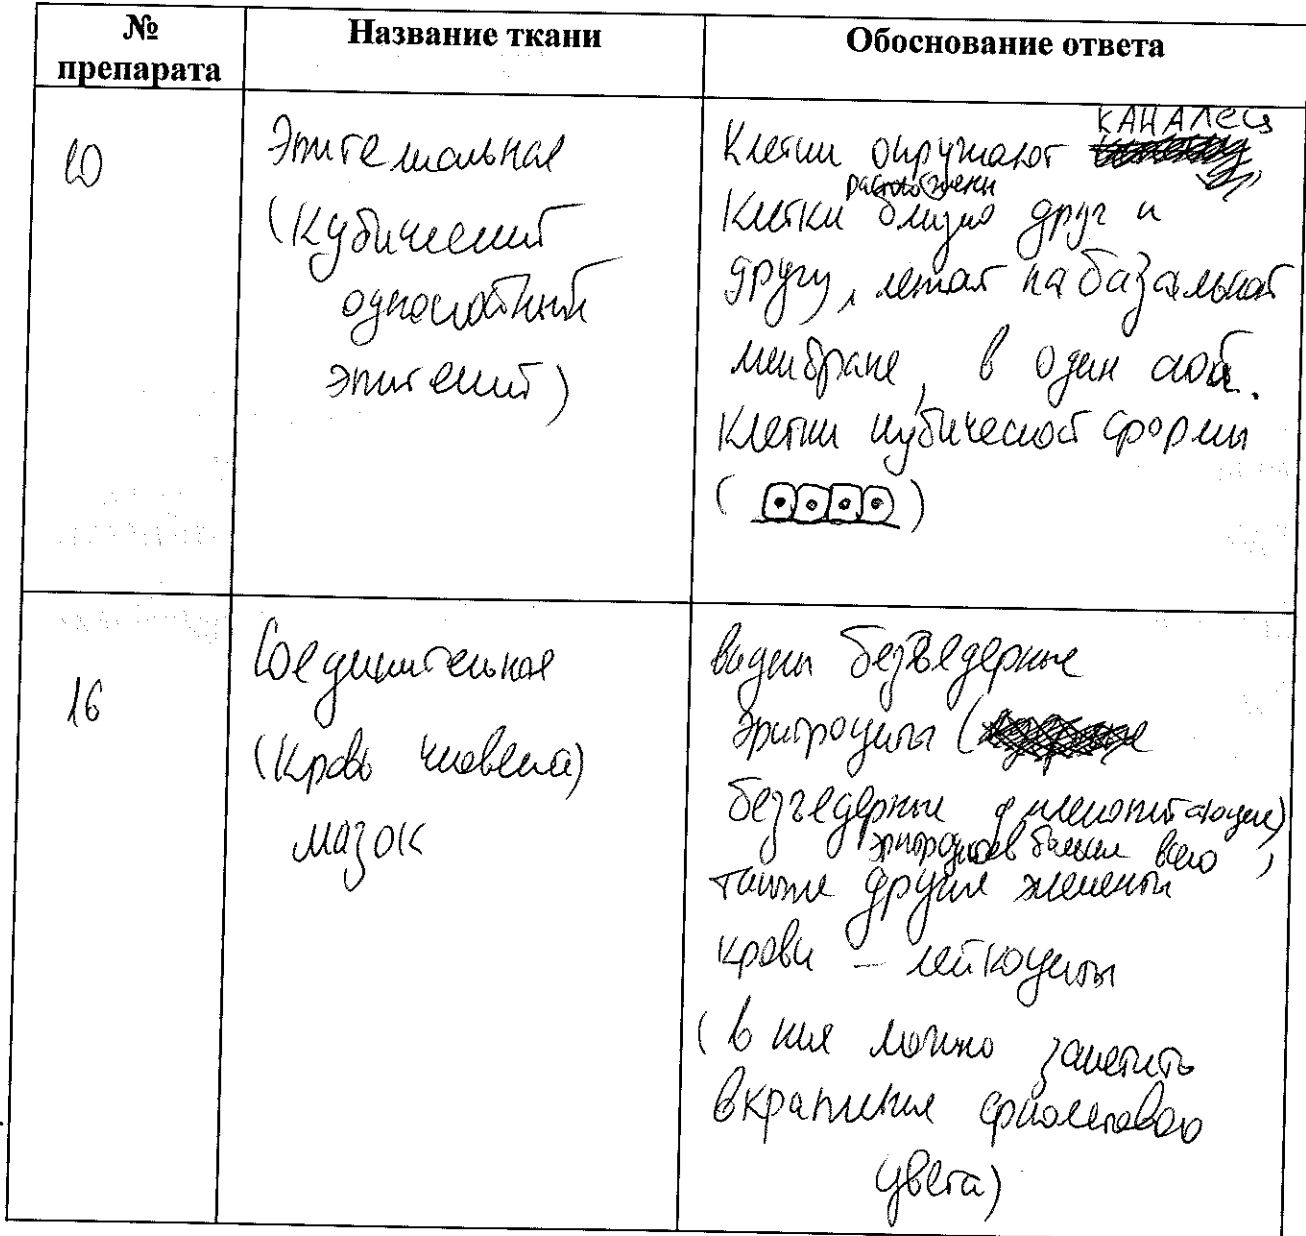 № препарата
Название ткани
Обоснование ответа
10
Эпителиальная
(Кубический
однослойный
эпителий)
Клетки окружают каналец,
Клетки расположены близко друг к
другу, лежат на базальной
мембране, в один слой.
Клетки кубической формы
16
Соединительная
(Кровь человека)
мазок
видны безъядерные
эритроциты (
безъядерные у млекопитающих)
эритроцитов больше всего,
также другие элементы
крови – лейкоциты
(в них можно заметить
вкрапления фиолетового
цвета)